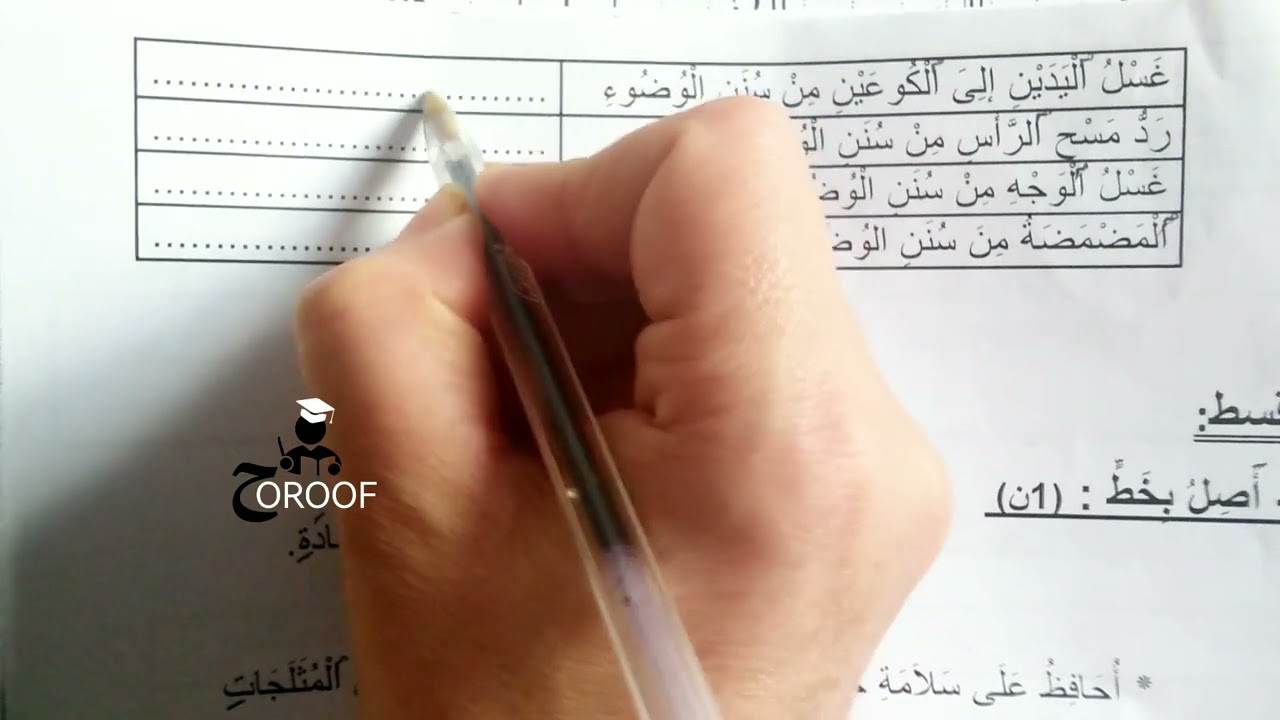 غَسْلُ ٱلْيَدَيْنِ إِلَىَ ٱلْكُوعَيْنِ مِنْ سُنَنِ الْوُضُوءِ ........................................
رَدُّ مَسْحِ ٱلرَّأسِ مِنْ سُنَنِ ........................................
غَسْلُ ٱلْوَجْهِ مِنْ سُنَنِ ............................
ٱلْمَضْمَضَةُ مِنَ سُنَنِ ........................
أَصِلُ بِخَطٍّ : (1ن)
حOROOF
* أُحَافِظُ عَلَى سَلاَمَةِ ٱلْمُثَلَجَاتِ